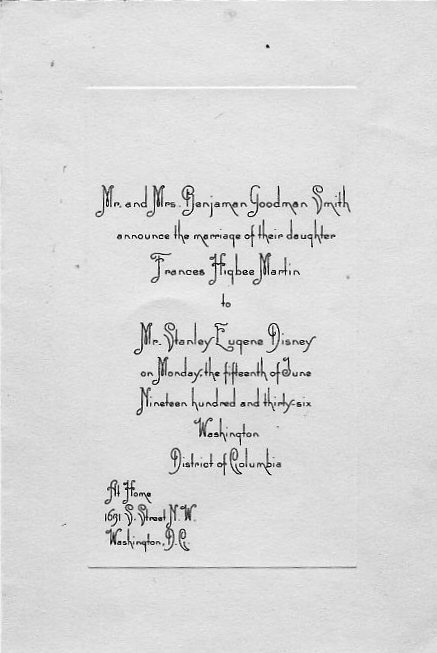 Mr. and Mrs. Benjaman Goodman Smith
announce the marriage of their daughter
Frances Higbee Martin
to
Mr. Stanley Eugene Disney
on Monday, the fifteenth of June
Nineteen hundred and thirty-six
Washington
District of Columbia
At Home
1631 S. Street N.W.
Washington, D.C.